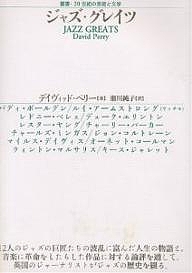 叢書・20世紀の芸術と文学
ジャズ・グレイツ
JAZZ GREATS
David Perry
デイヴィッド・ペリー[著] 瀬川純子[訳]
バディ・ボールデン/ルイ・アームストロング(サッチモ)
レドニー・ベシェ/デューク・エリントン
レスター・ヤング/チャーリー・パーカー
チャールズ・ミンガス/ジョン・コルトレーン
マイルス・デイヴィス/オーネット・コールマン
ウィントン・マルサリス/キース・ジャレット
12人のジャズの巨匠たちの波乱に富んだ人生の物語と、
音楽に革命をもたらした作品に対する論評を通して、
英国のジャーナリストがジャズの歴史を綴る。